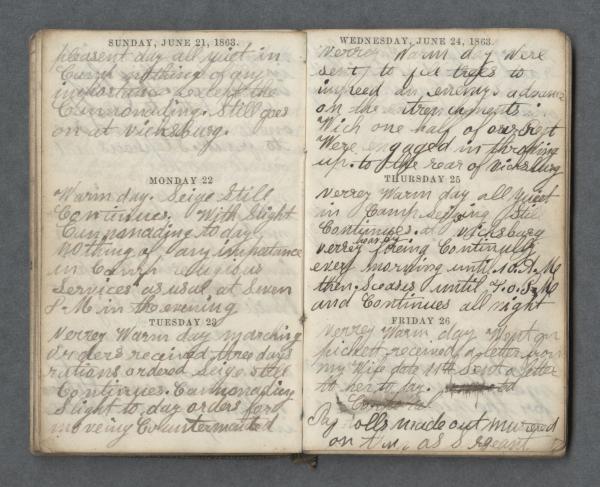 SUNDAY, JUNE 21, 1863.
pleasent day all quiet in
Camp nothing of any
importance except the
Cannonading. Still goes
on at Vicksburg.
MONDAY 22
Warm day. Seige Still
Continues. With Slight
Cannonading to day
Nothing of any impatance
in Camp religious
Services as usual at Seven
P M in the evening
TUESDAY 23
Verrey Warm day marching
orders received three days
rations ordered Seige Still
Continues. Cannonading
Slight to day orders for
moveing Countermanded
WEDNESDAY, JUNE 24, 1863.
Verrey Warm day Were
sent to fell trees to
impeed an enemys advance
on the entrenchments in
Wich one half of our regt
Were engaged in throwing
up. to the rear of Vicksburg
THURSDAY 25
Verrey Warm day all Quiet
in Camp Seiging Still
Continues. at Vicksburg
verrey heavey fireing Continuly
every morning until 10. A. M
then Sceases until 4. o. P. M
and Continues all night
FRIDAY 26
Verrey Warm day Went on
pickett received a letter from
my Wife date 11th Sent a letter
to her to day.
Pay rolls made out mustered
on as Sergeant